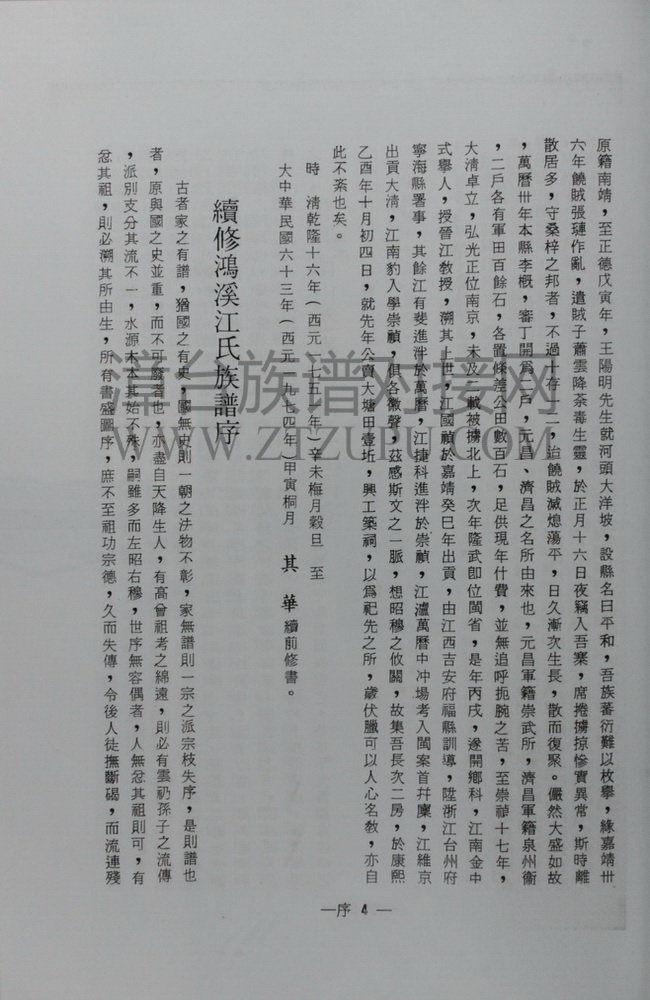 原籍南靖，至正德戊寅年，王陽明先生就河頭大洋坡，設縣名曰平和，吾族蕃衍難以枚舉，緣嘉靖卅
六年饒賊張璉作亂，遣賊子蕭雲降荼毒生靈，於正月十六日夜竊入吾寨，席捲擄掠慘實異常，斯時離
散居多，守桑梓之邦者，不過十存一二，治饒賊滅熄蕩平，日久漸次生長，散而復聚。儼然大盛如故
，萬曆卅年本縣李概，審丁開爲二戶，元昌、濟昌之名所由來也，元昌軍籍崇武所，濟昌軍籍泉州衞
，二戶各有軍田百餘石，各置條差公田數百石，足供現年什費，並無追呼扼腕之苦，至崇禎十七年，
大清卓立，弘光正位南京，未及一載被擄北上，次年隆武卽位閩省，是年丙戌，遂開鄉科，江南金中
式舉人，授晉江教授，溯其上世，江國禎於嘉靖癸巳年出貢，由江西吉安府福縣訓導，陞浙江台州府
寧海縣署事，其餘江有斐進泮於萬曆，江捷科進泮於崇禎，江瀘萬曆中冲場考入閩案首幷廩，江維京
出貢大清，江南豹入學崇禎，俱各徽聲，茲感斯文之一脈，想昭穆之攸關，故集吾長次二房，於康熙
乙酉年十月初四日，就先年公賣大塘田壹坵，興工築祠，以爲祀先之所，歲伏臘可以人心名敎，亦自
此不紊也矣。
時　清乾隆十六年(西元一七五一年)辛未梅月穀旦　至
大中華民國六十三年(西元一九七四年)甲寅桐月　其　華　續前修書。
續修鴻溪江氏族譜序
古者家之有譜，猶國之有史，國無史則一朝之法物不彰，家無譜則一宗之派宗枝失序，是則譜也
者，原與國之史並重，而不可廢者也，亦盡自天降生人，有高曾祖考之綿遠，則必有雲礽孫子之流傳
，派別支分其流不一，水源木本其始不殊，嗣雖多而左昭右穆，世序無容偶者，人無忿其祖則可，有
忿其祖，則必溯其所由生，所有書盛圖序，庶不至祖功宗德，久而失傳，令後人徒撫斷碣，而流連殘
—序 4 —
漳台族谱对接网
WWW.ZTZUPU.COM